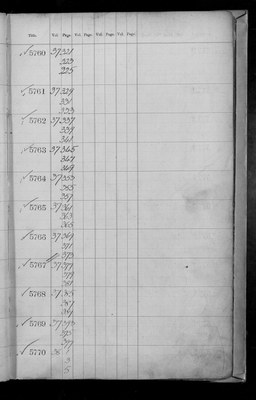 Title. Vol. Page. Vol. Page. Vol. Page. Vol. Page. Vol. Page.
5760 37 321
323
325
5761 37 329
331
333
5762 37 337
339
341
5763 37 345
347
349
5764 37 353
355
357
5765 37 361
363
365
5766 37 369
371
373
5767 37 377
379
381
5768 37 385
387
389
5769 37 393
395
397
5770 38 1
3
5